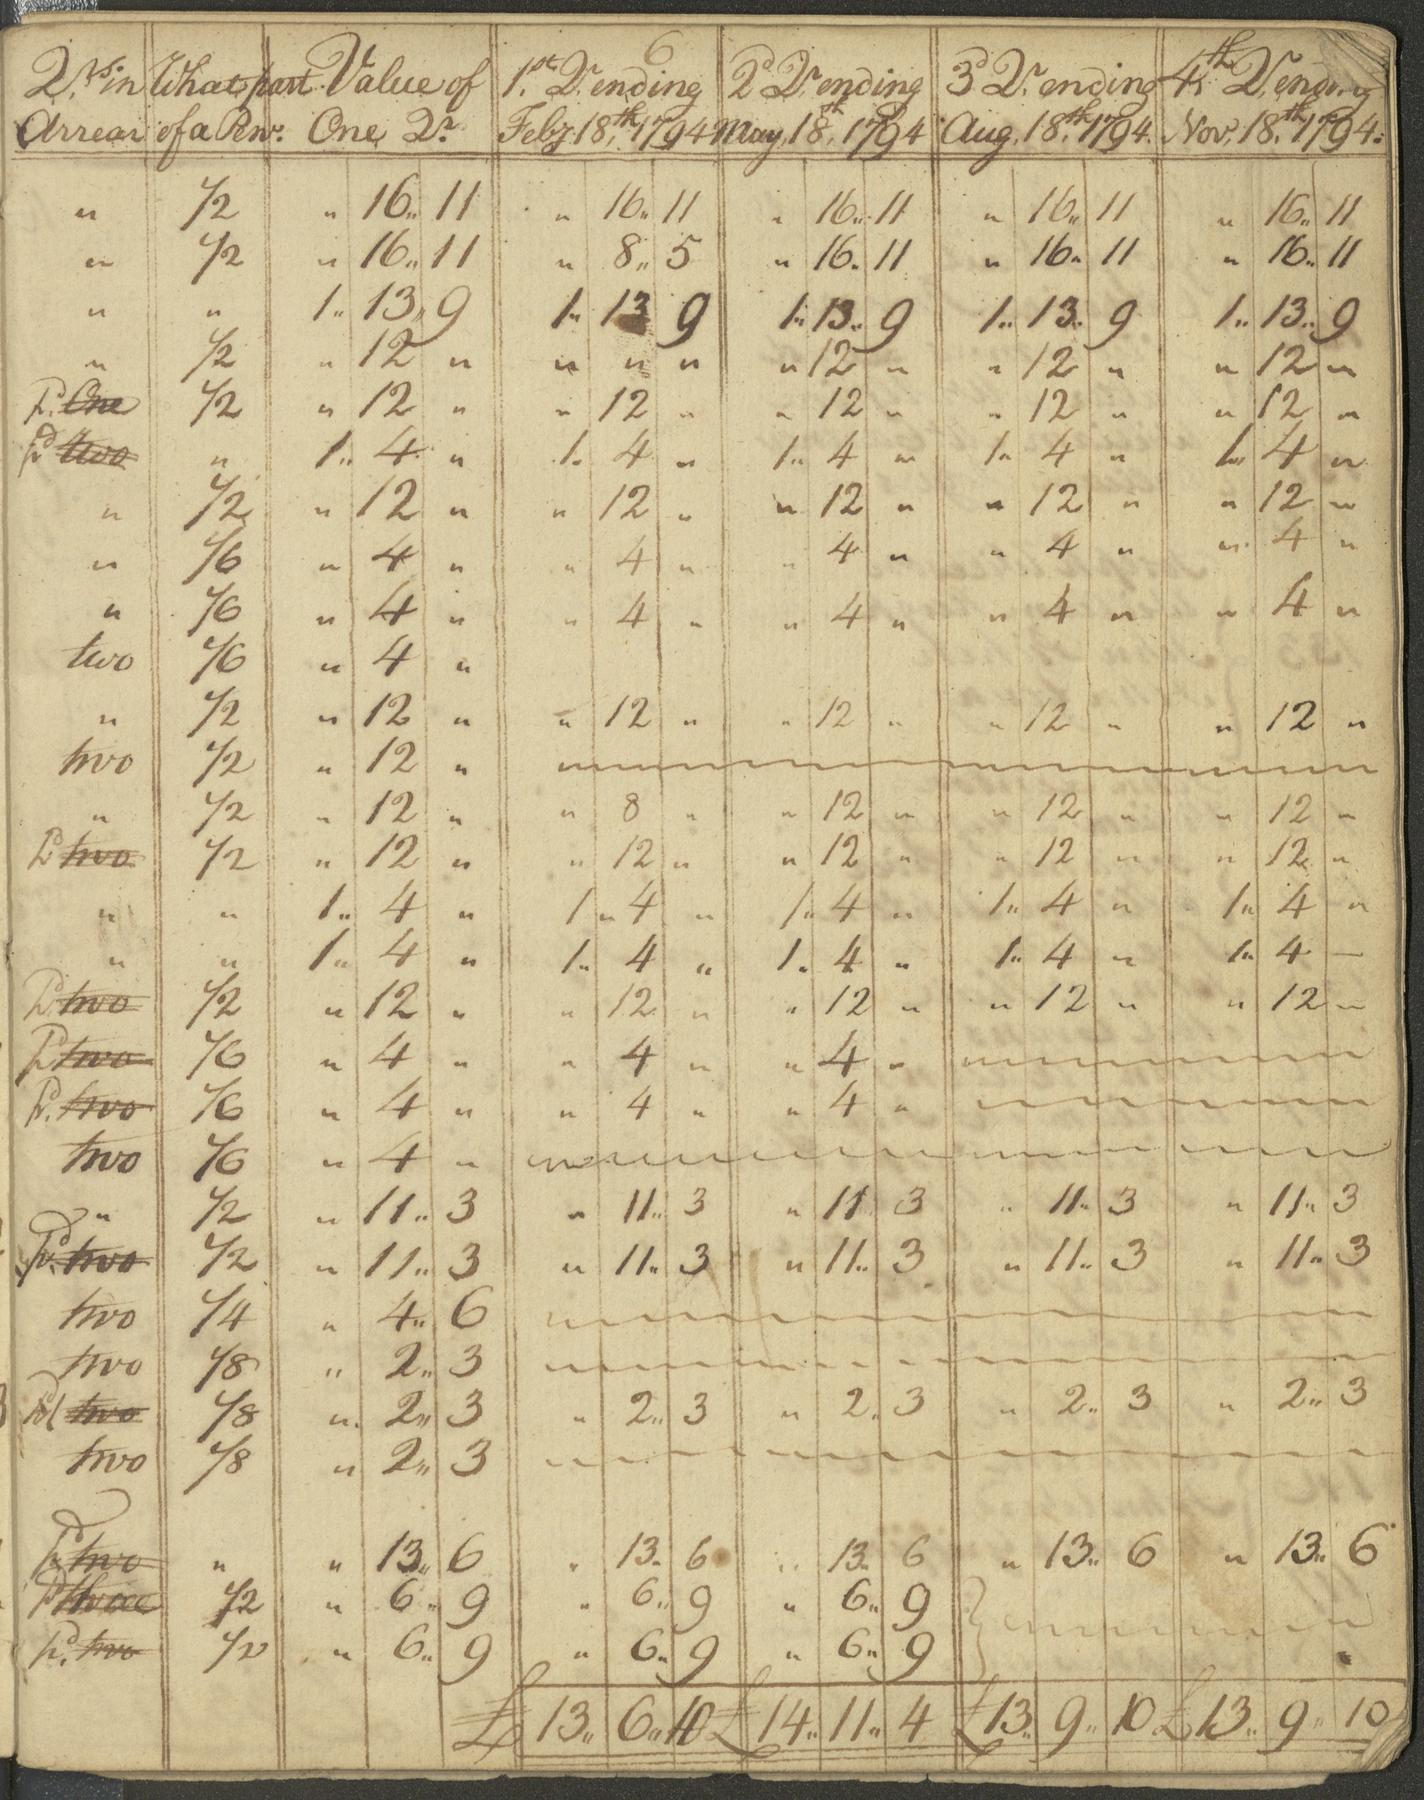 6
Qrs. in What part Value of 1st Qr. ending 2d Qr. ending 3d Qr. ending 4th Qr. ending
Arrear of a Pew. One Qr. Feby. 18th. 1794 May, 18th, 1794 Aug. 18th. 1794. Nov. 18th. 1794.
" 1/2 " 16" 11 " 16" 11 " 16" 11 " 16" 11 " 16" 11
" 1/2 " 16" 11 " 8" 5 " 16" 11 " 16" 11 " 16" 11
" " 1" 13" 9 1" 13 9 1" 13" 9 1" 13" 9 1" 13" 9
" 1/2 " 12 " " " " " 12 " " 12 " " 12 "
Pd. One 1/2 " 12 " " 12 " " 12 " " 12 " " 12 "
Pd two " 1" 4 " 1" 4 " 1" 4 " 1" 4 " 1" 4 "
" 1/2 " 12 " " 12 " " 12 " " 12 " " 12 "
" 1/6 " 4 " " 4 " " 4 " " 4 " " 4 "
" 1/6 " 4 " " 4 " " 4 " " 4 " " 4 "
two 1/6 " 4 "
" 1/2 " 12 " " 12 " " 12 " " 12 " " 12 "
two 1/2 " 12 "
" 1/2 " 12 " " 8 " " 12 " " 12 " " 12 "
Pd two 1/2 " 12 " " 12 " " 12 " " 12 " " 12 "
" " 1" 4 " 1" 4 " 1" 4 " 1" 4 " 1" 4 "
" " 1" 4 " 1" 4 " 1" 4 " 1" 4 " 1" 4 –
Pd two 1/2 " 12 " " 12 " " 12 " " 12 " " 12 "
Pd two 1/6 " 4 " " 4 " " 4 "
Pd. two 1/6 " 4 " " 4 " " 4 "
two 1/6 " 4 "
" 1/2 " 11" 3 " 11" 3 " 11 3 " 11" 3 " 11" 3
Pd. two 1/2 " 11" 3 " 11" 3 " 11" 3 " 11" 3 " 11" 3
two 1/4 " 4" 6
two 1/8 " 2" 3
Pd two 1/8 " 2" 3 " 2" 3 " 2" 3 " 2" 3 " 2" 3
two 1/8 " 2" 3
Pd two " " 13" 6 " 13" 6 " 13" 6 " 13" 6 " 13" 6
Pd three 1/2 " 6" 9 " 6" 9 " 6" 9
Pd. two 1/2 " 6" 9 " 6" 9 " 6" 9
£ 13" 6" 10 £ 14" 11" 4 £ 13" 9" 10 £ 13" 9" 10